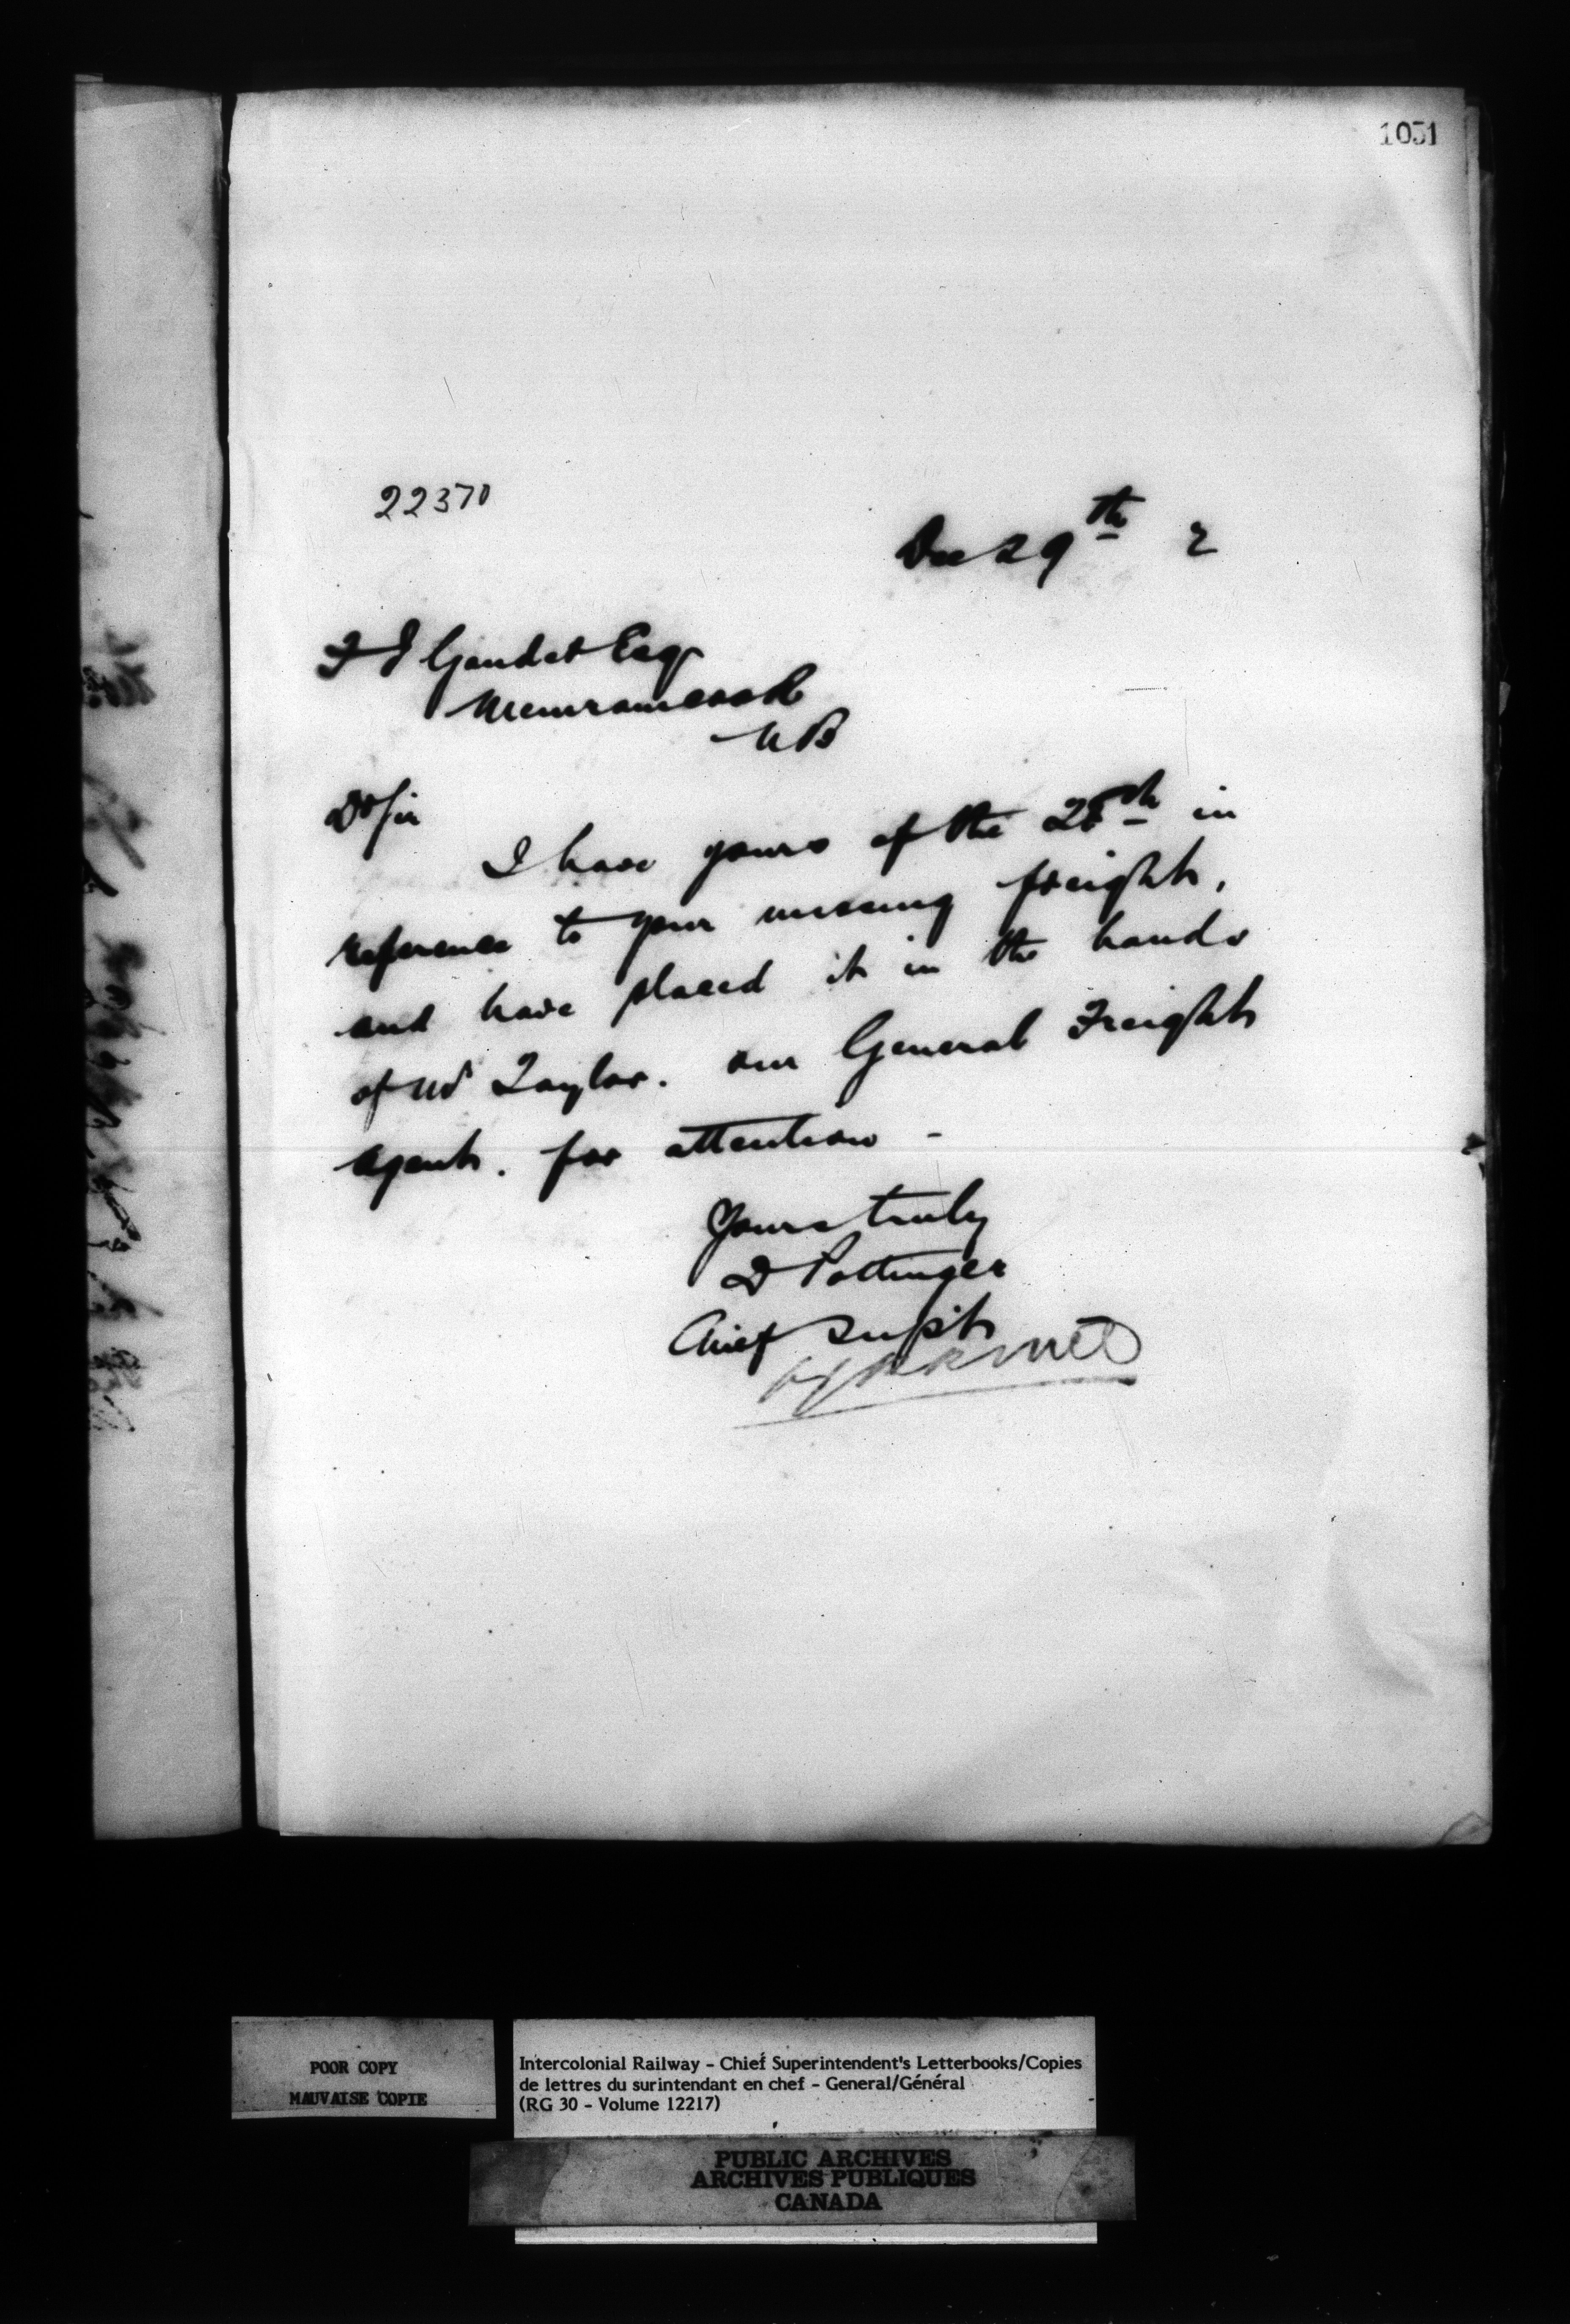 1051
22370
Dec 29th 2
F J Gaudet Esq
Memramcook
NB
Dr Sir
I have yours of the 28th in
reference to your missing freight,
and have placed it in the hands
of Mr Taylor. our General Freight
Agent. for attention -
Yours truly
D Pottinger
Chief Supt
POOR COPY
MAUVAISE COPIE
Intercolonial Railway - Chief Superintendent's Letterbooks/Copies
de lettres du surintendant en chef - General/Général
(RG 30 - Volume 12217)
PUBLIC ARCHIVES
ARCHIVES PUBLIQUES
CANADA